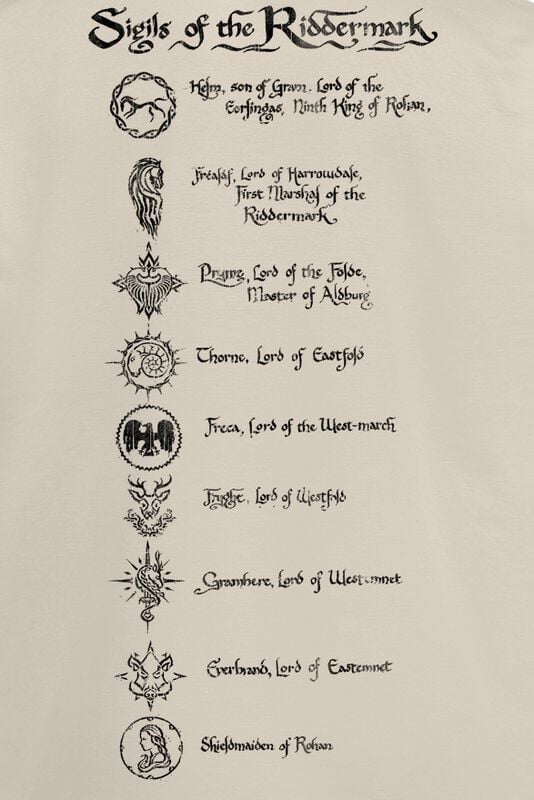 Sigils of the Riddermark
Helm, son of Gram. Lord of the
Eorlingas, Ninth King of Rohan,
Fréaláf, Lord of Harrowdale,
First Marshal of the
Riddermark
Pryme, Lord of the Folde,
Master of Aldburg
Thorne, Lord of Eastfold
Freca, Lord of the West-march
Fryght, Lord of Westfold
Gramhere, Lord of Westemnet
Everbrand, Lord of Eastemnet
Shieldmaiden of Rohan